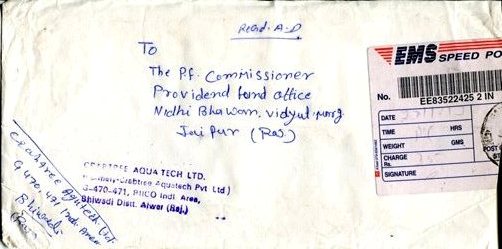 Regd. A-D
To
The P.f. Commissioner
Providend fund office
Nidhi Bhawan, vidyut marg
Jaipur (Raj)
EMS SPEED PO
No.
EE83522425 2 IN
DATE
TIME HRS
WEIGHT GMS
CHARGE
Rs.
SIGNATURE
POST
CRABTREE AQUA TECH LTD.
Crabtree Aquatech Pvt Ltd)
G-470-471, RIICO Indl. Area,
Bhiwadi Distt. Alwar (Raj.)
Crabtree Aquatech Ltd.
G 470, 471 Indl. Area
Bhiwadi
(Raj)